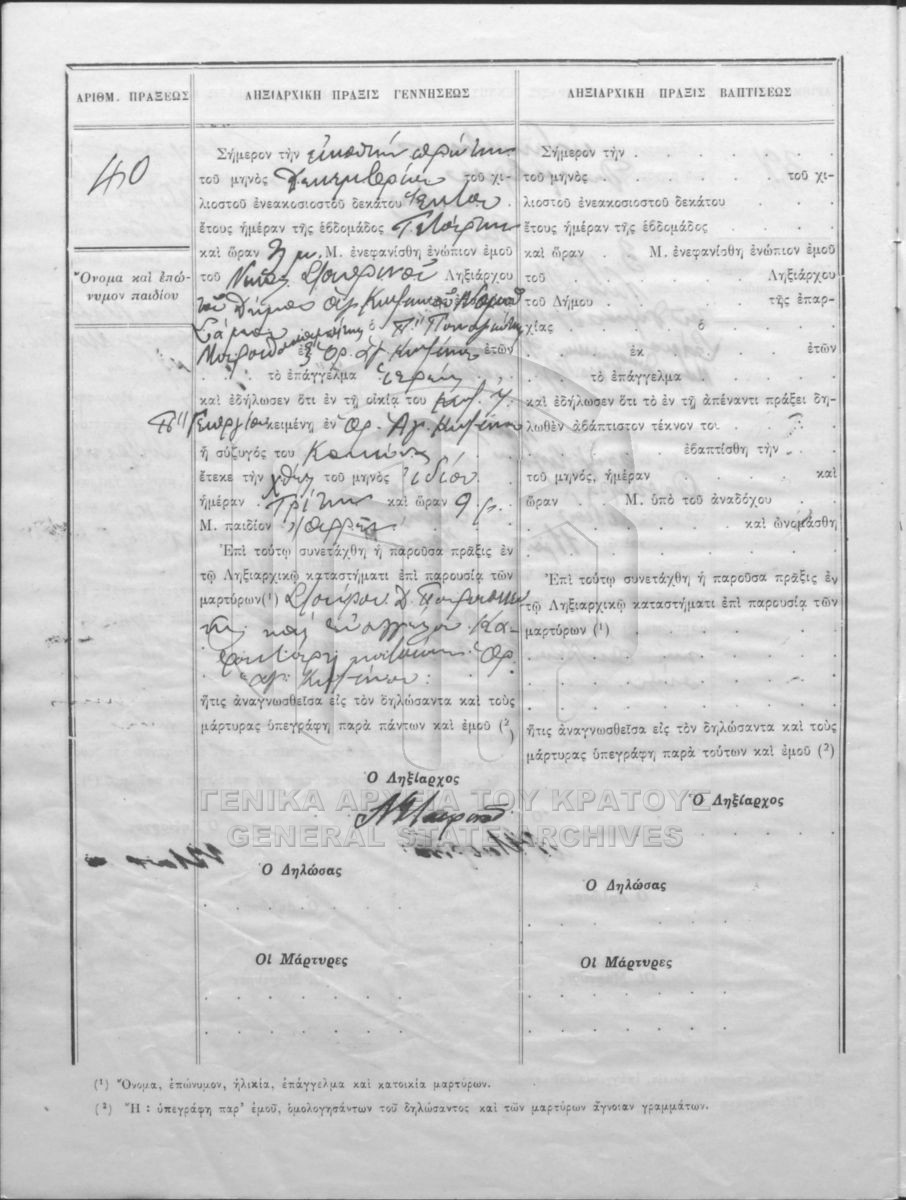 ΑΡΙΘΜ. ΠΡΑΞΕΩΣ
ΛΗΞΙΑΡΧΙΚΗ ΠΡΑΞΙΣ ΓΕΝΝΗΣΕΩΣ
ΛΗΞΙΑΡΧΙΚΗ ΠΡΑΞΙΣ ΒΑΠΤΙΣΕΩΣ
40
Ὄνομα καὶ ἐπώ-
νυμον παιδίου
Σήμερον τὴν εἰκοστὴν πρώτην
τοῦ μηνὸς Δεκεμβρίου τοῦ χι-
λιοστοῦ ἐνεακοσιοστοῦ δεκάτου ἕκτου
ἔτους ἡμέραν τῆς ἑβδομάδος Τετάρτην
καὶ ὥραν Μ. ἐνεφανίσθη ἐνώπιον ἐμοῦ
τοῦ Νικ. Σταυρινοῦ Ληξιάρχου
τοῦ Δήμου Ἁγ. Κων/τίνου Νομοῦ
Σάμου ὁ Π" Παναγιώτης
ἐξ Ὁρ. Ἁγ. Κων/τίνου ἐτῶν
τὸ ἐπάγγελμα Ἱερεὺς
καὶ ἐδήλωσεν ὅτι ἐν τῇ οἰκίᾳ του
Π" Γεωργίου κειμένῃ ἐν Ὁρ. Ἁγ. Κων/τίνου
ἡ σύζυγός του
ἔτεκε τὴν χθὲς τοῦ μηνὸς ἰδίου
ἡμέραν Τρίτην καὶ ὥραν 9
Μ. παιδίον ἄρρεν
Ἐπὶ τούτῳ συνετάχθη ἡ παροῦσα πρᾶξις ἐν
τῷ Ληξιαρχικῷ καταστήματι ἐπὶ παρουσίᾳ τῶν
μαρτύρων(¹) Σταύρου Δ.
καὶ Εὐαγγέλου Κα-
κατοίκων Ὁρ.
Ἁγ. Κων/τίνου
ἥτις ἀναγνωσθεῖσα εἰς τὸν δηλώσαντα καὶ τοὺς
μάρτυρας ὑπεγράφη παρὰ πάντων καὶ ἐμοῦ (²)
Ὁ Ληξίαρχος
Ν Σταυρινοῦ
Ὁ Δηλώσας
Οἱ Μάρτυρες
Σήμερον τὴν
τοῦ μηνὸς τοῦ χι-
λιοστοῦ ἐνεακοσιοστοῦ δεκάτου
ἔτους ἡμέραν τῆς ἑβδομάδος
καὶ ὥραν Μ. ἐνεφανίσθη ἐνώπιον ἐμοῦ
τοῦ Ληξιάρχου
τοῦ Δήμου τῆς ἐπαρ-
χίας ὁ
ἐκ ἐτῶν
τὸ ἐπάγγελμα
καὶ ἐδήλωσεν ὅτι τὸ ἐν τῇ ἀπέναντι πράξει δη-
λωθὲν ἀβάπτιστον τέκνον του
ἐβαπτίσθη τὴν
τοῦ μηνός, ἡμέραν καὶ
ὥραν Μ. ὑπὸ τοῦ ἀναδόχου
καὶ ὠνομάσθη
Ἐπὶ τούτῳ συνετάχθη ἡ παροῦσα πρᾶξις ἐν
τῷ Ληξιαρχικῷ καταστήματι ἐπὶ παρουσίᾳ τῶν
μαρτύρων (¹)
ἥτις ἀναγνωσθεῖσα εἰς τὸν δηλώσαντα καὶ τοὺς
μάρτυρας ὑπεγράφη παρὰ τούτων καὶ ἐμοῦ (²)
Ὁ Ληξίαρχος
Ὁ Δηλώσας
Οἱ Μάρτυρες
ΓΕΝΙΚΑ ΑΡΧΕΙΑ ΤΟΥ ΚΡΑΤΟΥΣ
GENERAL STATE ARCHIVES
(¹) Ὄνομα, ἐπώνυμον, ἡλικία, ἐπάγγελμα καὶ κατοικία μαρτύρων.
(²) Ἢ : ὑπεγράφη παρ' ἐμοῦ, ὁμολογησάντων τοῦ δηλώσαντος καὶ τῶν μαρτύρων ἄγνοιαν γραμμάτων.